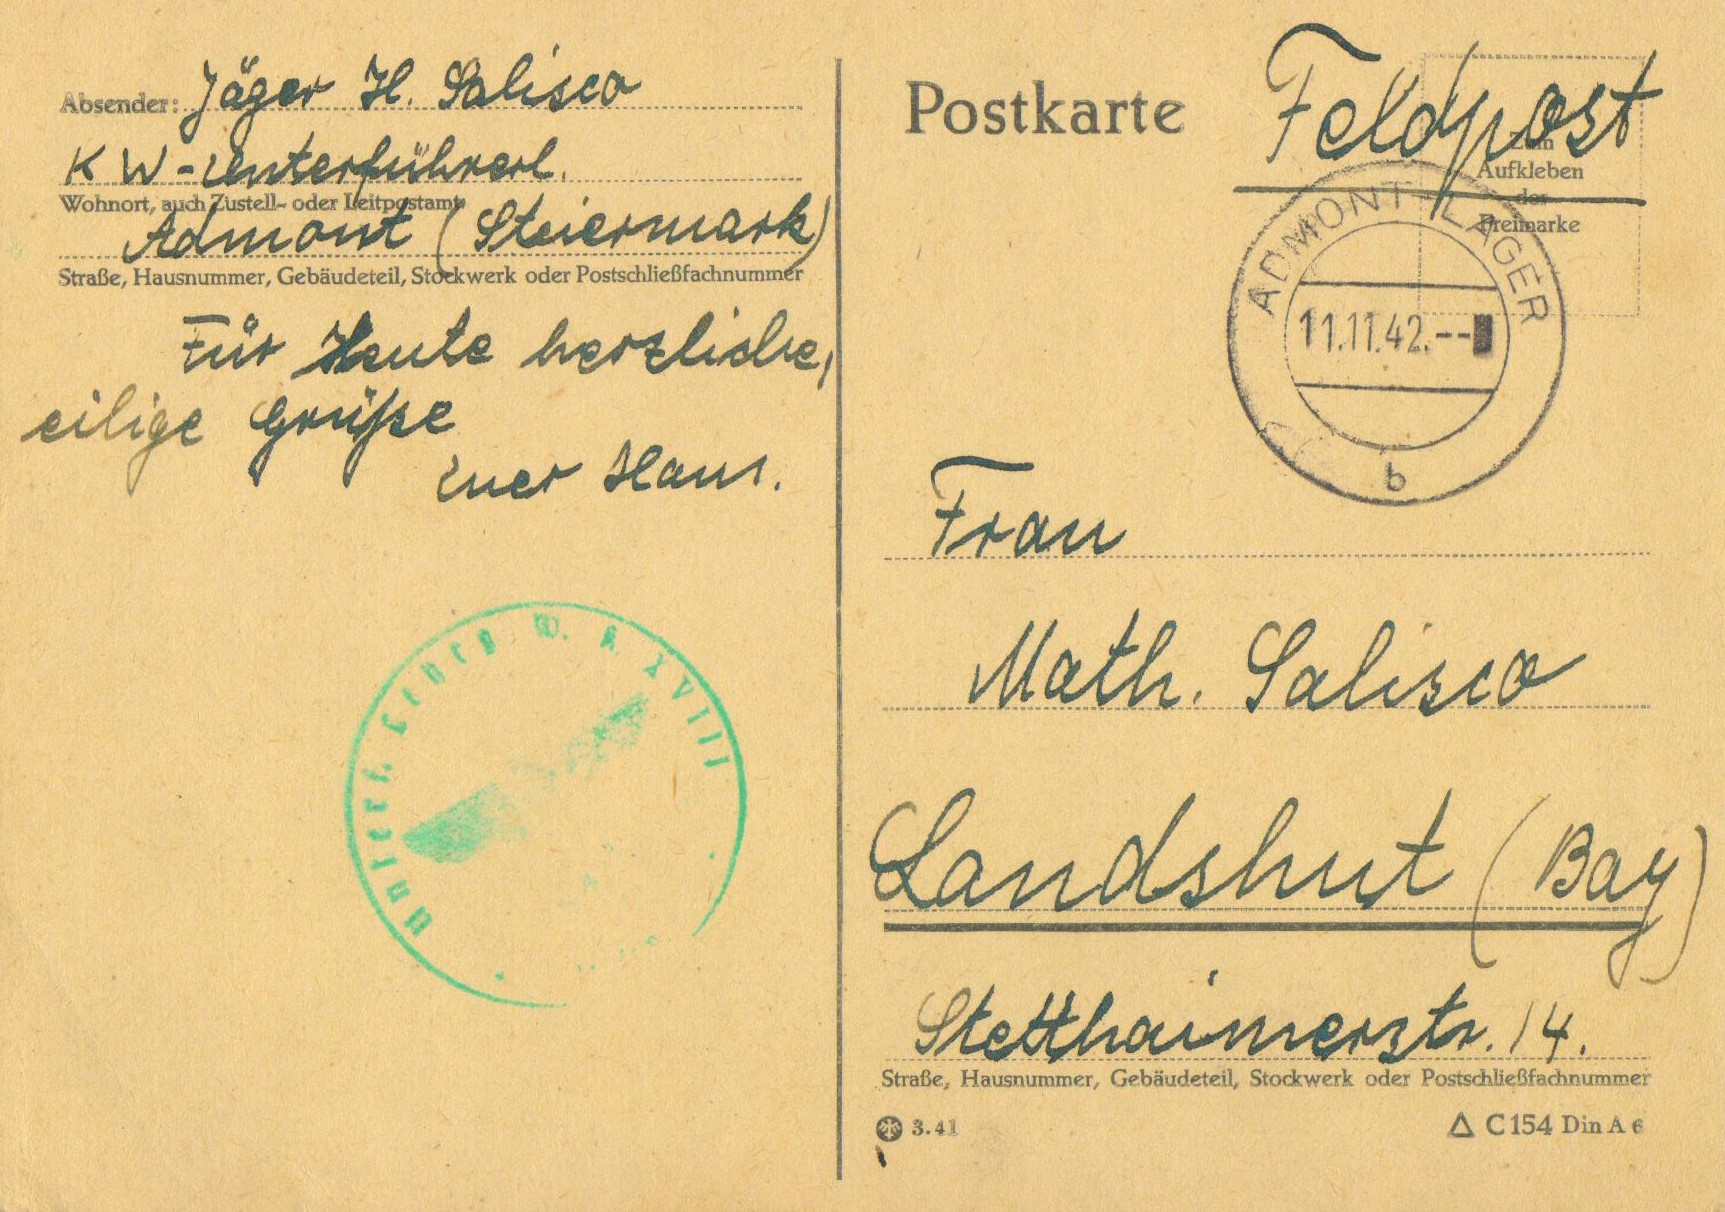 Absender: Jäger H. Salisco
KW-Unterführerl.
Wohnort, auch Zustell- oder Leitpostamt
Admont (Steiermark)
Straße, Hausnummer, Gebäudeteil, Stockwerk oder Postschließfachnummer
Für Heute herzliche,
eilige Grüße
Euer Hans.
W. K. XVIII
Postkarte
Feldpost
Zum
Aufkleben
der
Freimarke
ADMONT LAGER
11.11.42.--
b
Frau
Math. Salisco
Landshut (Bay)
Stetthaimerstr. 14.
Straße, Hausnummer, Gebäudeteil, Stockwerk oder Postschließfachnummer
3.41
C 154 Din A 6